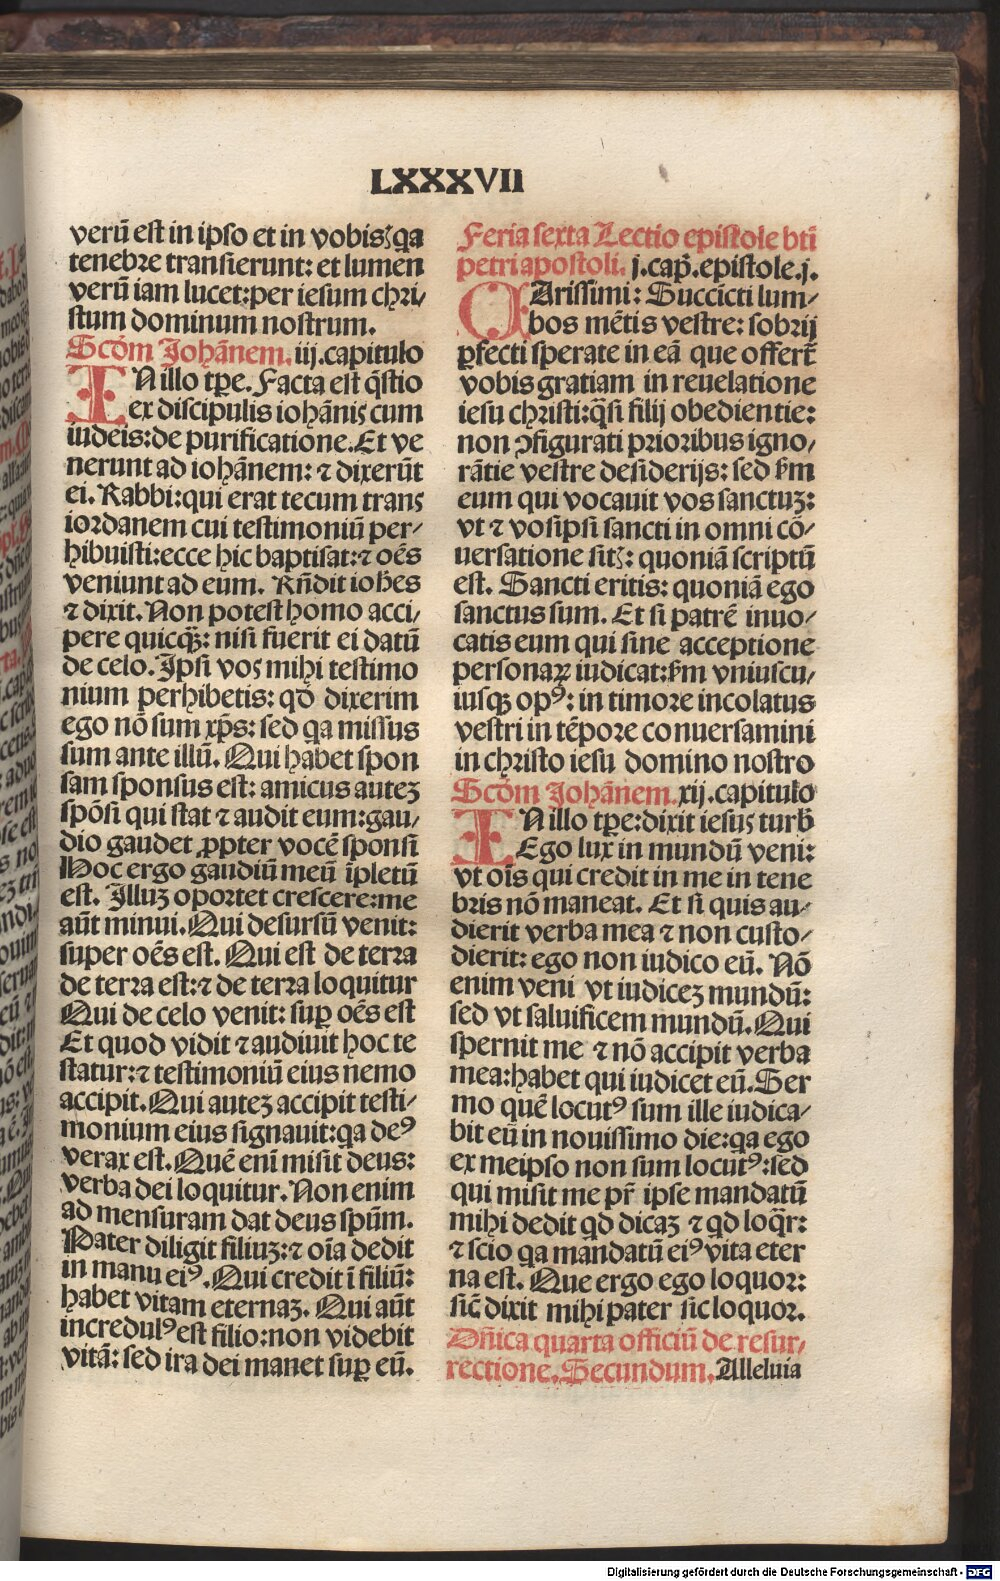 LXXXVII
verū est in ipso et in vobis⁊ qa
tenebre transierunt: et lumen
verū iam lucet: per iesum chri⸗
stum dominum nostrum.
Scd̄m Johānem. iij. capitulo
IN illo tꝑe. Facta est q̄stio
ex discipulis iohānis cum
iudeis: de purificatione. Et ve
nerunt ad iohānem: ⁊ dixerūt
ei. Rabbi: qui erat tecum trans
iordanem cui testimoniū per⸗
hibuisti: ecce hic baptisat: ⁊ oēs
veniunt ad eum. Rn̄dit iohes
⁊ dixit. Non potest homo acci⸗
pere quicqꝫ: nisi fuerit ei datū
de celo. Jpsi vos mihi testimo
nium perhibetis: qd̄ dixerim
ego nō sum xp̄s: sed qa missus
sum ante illū. Qui habet spon
sam sponsus est: amicus auteꝫ
spōsi qui stat ⁊ audit eum: gau⸗
dio gaudet ꝓpter vocē sponsi
Hoc ergo gaudiū meū īpletū
est. Jlluꝫ oportet crescere: me
aūt minui. Qui desursū venit:
super oēs est. Qui est de terra
de terra est: ⁊ de terra loquitur
Qui de celo venit: suꝑ oēs est
Et quod vidit ⁊ audiuit hoc te
statur: ⁊ testimoniū eius nemo
accipit. Qui auteꝫ accipit testi⸗
monium eius signauit: qa deꝰ
verax est. Quē enī misit deus:
verba dei loquitur. Non enim
ad mensuram dat deus spūm.
Pater diligit filiuꝫ: ⁊ oīa dedit
in manu eiꝰ. Qui credit ī filiū:
habet vitam eternaꝫ. Qui aūt
incredulꝰ est filio: non videbit
vitā: sed ira dei manet suꝑ eū.
Feria sexta Lectio epistole bt̄i
petri apostoli. j. cap̄. epistole. j.
CArissimi: Succīcti lum⸗
bos mētis vestre: sobrij
ꝑfecti sperate in eā que offert̄
vobis gratiam in reuelatione
iesu christi: q̄si filij obedientie:
non ꝯfigurati prioribus igno⸗
rātie vestre desiderijs: sed ẜm
eum qui vocauit vos sanctuꝫ:
vt ⁊ vosipsi sancti in omni cō⸗
uersatione sitꝭ: quoniā scriptū
est. Sancti eritis: quoniā ego
sanctus sum. Et si patrē inuo⸗
catis eum qui sine acceptione
personaꝝ iudicat: ẜm vniuscu⸗
iusqꝫ opꝰ: in timore incolatus
vestri in tēpore conuersamini
in christo iesu domino nostro
Scd̄m Johānem. xij. capitulo
IN illo tꝑe: dixit iesus turb̄
Ego lux in mundū veni:
vt oīs qui credit in me in tene
bris nō maneat. Et si quis au⸗
dierit verba mea ⁊ non custo⸗
dierit: ego non iudico eū. Nō
enim veni vt iudiceꝫ mundū:
sed vt saluificem mundū. Qui
spernit me ⁊ nō accipit verba
mea: habet qui iudicet eū. Ser
mo quē locutꝰ sum ille iudica⸗
bit eū in nouissimo die: qa ego
ex meipso non sum locutꝰ: sed
qui misit me pr̄ ipse mandatū
mihi dedit qd dicaꝫ ⁊ qd loq̄r:
⁊ scio qa mandatū eiꝰ vita eter
na est. Que ergo ego loquor:
sic̄ dixit mihi pater sic loquor.
Dn̄ica quarta officiū de resur⸗
rectione. Secundum. Alleluia
Digitalisierung gefördert durch die Deutsche Forschungsgemeinschaft - DFG